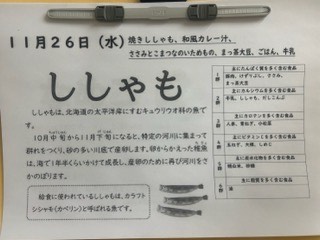 11月26日(水)
焼きししゃも、和風カレー汁、
ささみとこまつなのいためもの、まっ茶大豆、ごはん、牛乳
ししゃも
ししゃもは、北海道の太平洋岸にすむキュウリウオ科の魚で
す。
10月中旬から11月下旬になると、特定の河川に集まって
群れをつくり、砂の多い川底で産卵します。卵からかえった稚魚
は、海で1年半くらいかけて成長し、産卵のために再び河川をさ
かのぼります。
給食に使われているししゃもは、カラフト
シシャモ(カペリン)と呼ばれる魚です。
1群
主にたんぱく質を多く含む食品
豚肉、けずりぶし、ささみ、
まっ茶大豆
2群
主にカルシウムを多く含む食品
牛乳、ししゃも、だしこんぶ
3群
主にカロテンを多く含む食品
人参、青ねぎ、小松菜
4群
主にビタミンCを多く含む食品
玉ねぎ、大根、しめじ
5群
主に炭水化物を多く含む食品
精白米、砂糖
6群
主に脂質を多く含む食品
油